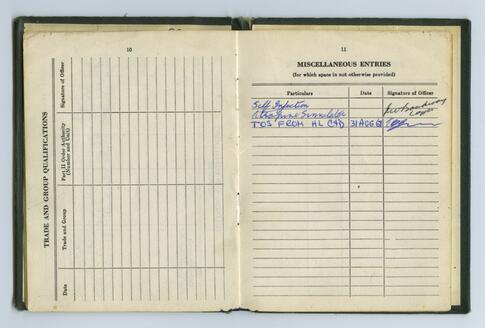 10
TRADE AND GROUP QUALIFICATIONS
Signature of Officer
Part II Order Authority
(Number and Unit)
Trade and Group
Date
11
MISCELLANEOUS ENTRIES
(for which space is not otherwise provided)
Particulars Date Signature of Officer
Self Injection
Atropine Simulator
TOS FROM HL CAD 31 AUG 61